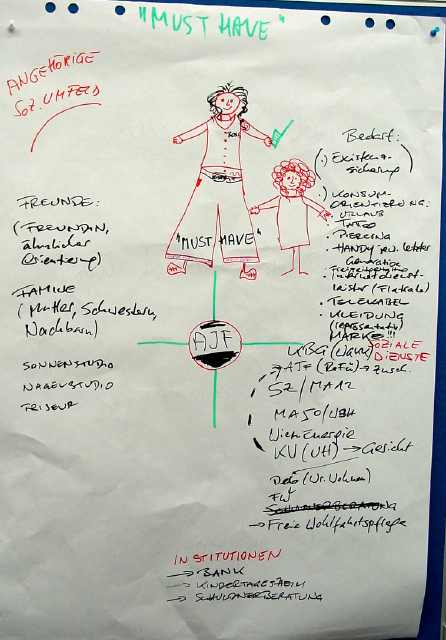 "MUST HAVE"
ANGEHÖRIGE
SOZ. UMFELD
FREUNDE:
(FREUNDIN,
ähnlicher
Orientierung)
FAMILIE
(Mutter, Schwestern,
Nachbarn)
SONNENSTUDIO
NAGELSTUDIO
FRISEUR
"MUST HAVE"
AJF
Bedarf:
(·) Existenz-
sicherung
KONSUM-
ORIENTIERUNG:
URLAUB
TATTOO
PIERCING
HANDY letzter
Generation
(Flatrate)
TELEKABEL
KLEIDUNG
MARKE!!!
SOZIALE
DIENSTE
AJF (ReFü) → Zusch.
SZ/MA12
MA50/WBH
Wien Energie
KV (UH) → Gericht
FW
SCHULDNERBERATUNG
→ Freie Wohlfahrtspflege
INSTITUTIONEN
→ BANK
→ KINDERTAGESHEIM
→ SCHULDNERBERATUNG